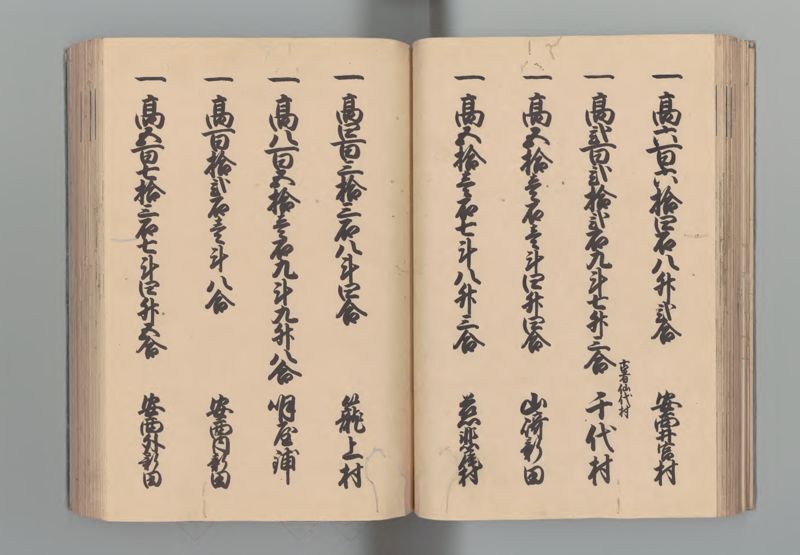 一 高六百六拾四石八升弐合 安西井宮村
一 高弐百弐拾弐石九斗七升三合 古者仙代村 千代村
一 高五拾壱石壱斗四升四合 山済新田
一 高五拾壱石七斗八升三合 慈悲尾村
一 高四百三拾三石八斗四合 籠上村
一 高八百五拾壱石九斗九升八合 明屋鋪
一 高百拾弐石壱斗八合 安西内新田
一 高五百七拾三石七斗四升五合 安西外新田